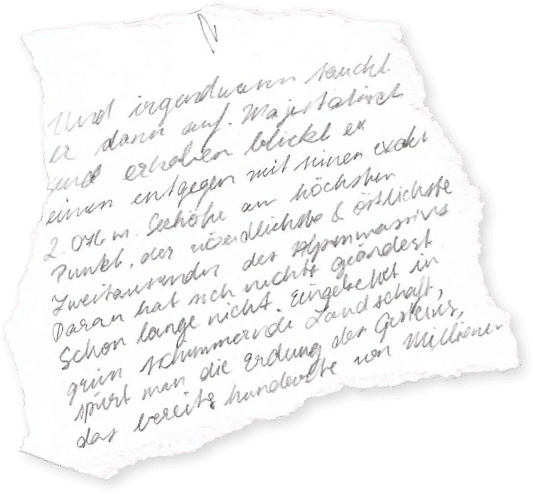 Und irgendwann taucht
er dann auf. Majestätisch
und erhaben blickt er
einem entgegen mit seinen exakt
2.076 m. Seehöhe am höchsten
Punkt, der nördlichste & östlichste
Zweitausender des Alpenmassivs
Daran hat sich nichts geändert
Schon lange nicht. Eingebettet in
grün schimmernde Landschaft,
spürt man die Erdung des Gesteins,
das bereits hunderte von Millionen